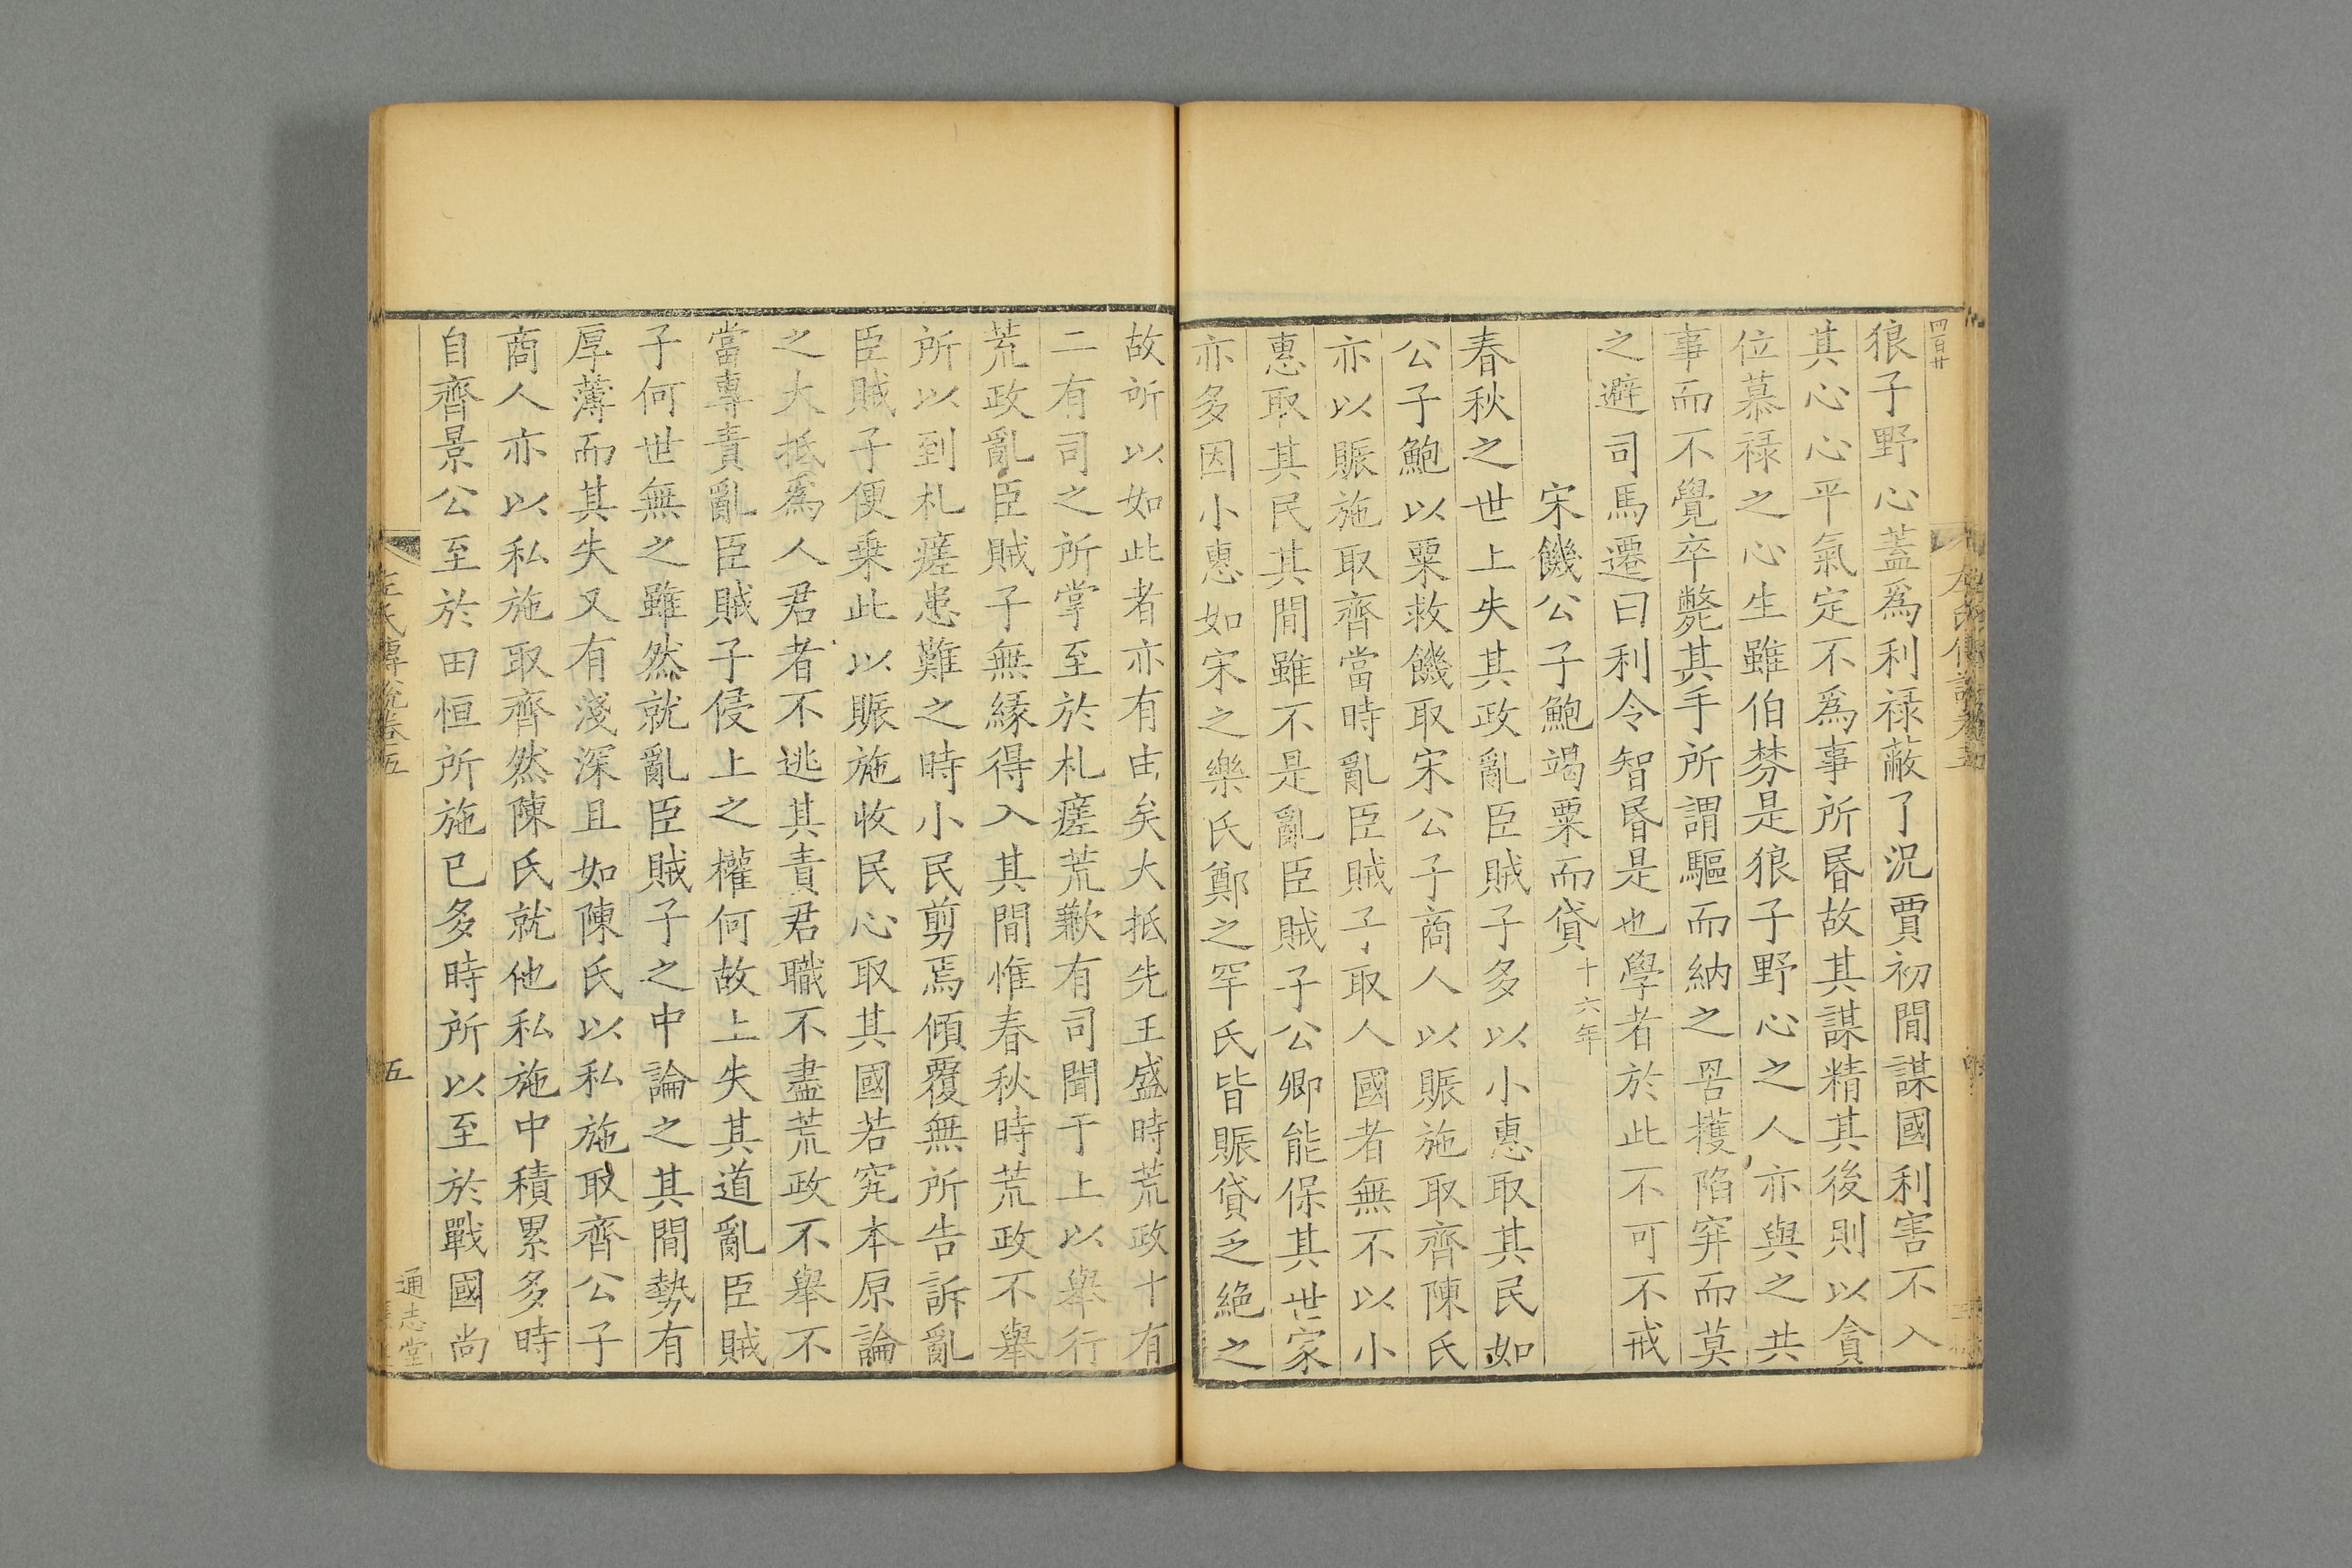 四百廿
狼子野心蓋爲利禄蔽了況賈初間謀國利害不入
其心心平氣定不爲事所昬故其謀精其後則以貪
位慕禄之心生雖伯棼是狼子野心之人亦與之共
事而不覺卒斃其手所謂驅而納之罟擭陷穽而莫
之避司馬遷曰利令智昬是也學者於此不可不戒
宋饑公子鮑竭粟而貸十六年
春秋之世上失其政亂臣賊子多以小惠取其民如
公子鮑以粟救饑取宋公子商人以賑施取齊陳氏
亦以賑施取齊當時亂臣賊子取人國者無不以小
惠取其民其間雖不是亂臣賊子公卿能保其世家
亦多因小惠如宋之樂氏鄭之罕氏皆賑貸乏絶之
故所以如此者亦有由矣大抵先王盛時荒政十有
二有司之所掌至於札瘥荒歉有司聞于上以舉行
荒政亂臣賊子無緣得入其間惟春秋時荒政不舉
所以到札瘥患難之時小民剪焉傾覆無所告訴亂
臣賊子便乗此以賑施收民心取其國若究本原論
之大抵爲人君者不逃其責君職不盡荒政不舉不
當專責亂臣賊子侵上之權何故上失其道亂臣賊
子何世無之雖然就亂臣賊子之中論之其間勢有
厚薄而其失又有淺深且如陳氏以私施取齊公子
商人亦以私施取齊然陳氏就他私施中積累多時
自齊景公至於田恒所施已多時所以至於戰國尚
左氏傳說卷五
五
通志堂